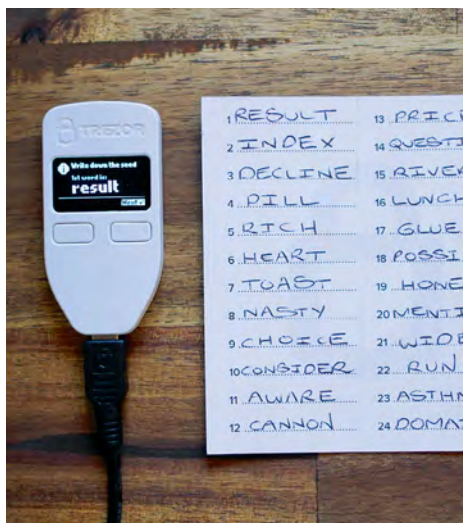 TREZOR
Write down the seed
1st word is:
result
Next
1 RESULT
2 INDEX
3 DECLINE
4 PILL
5 RICH
6 HEART
7 TOAST
8 NASTY
9 CHOICE
10 CONSIDER
11 AWARE
12 CANNON
13 PRICE
14 QUESTI
15 RIVER
16 LUNCH
17 GLUE
18 POSSI
19 HONE
20 MENTI
21 WIDE
22 RUN
23 ASTHM
24 DOMAI